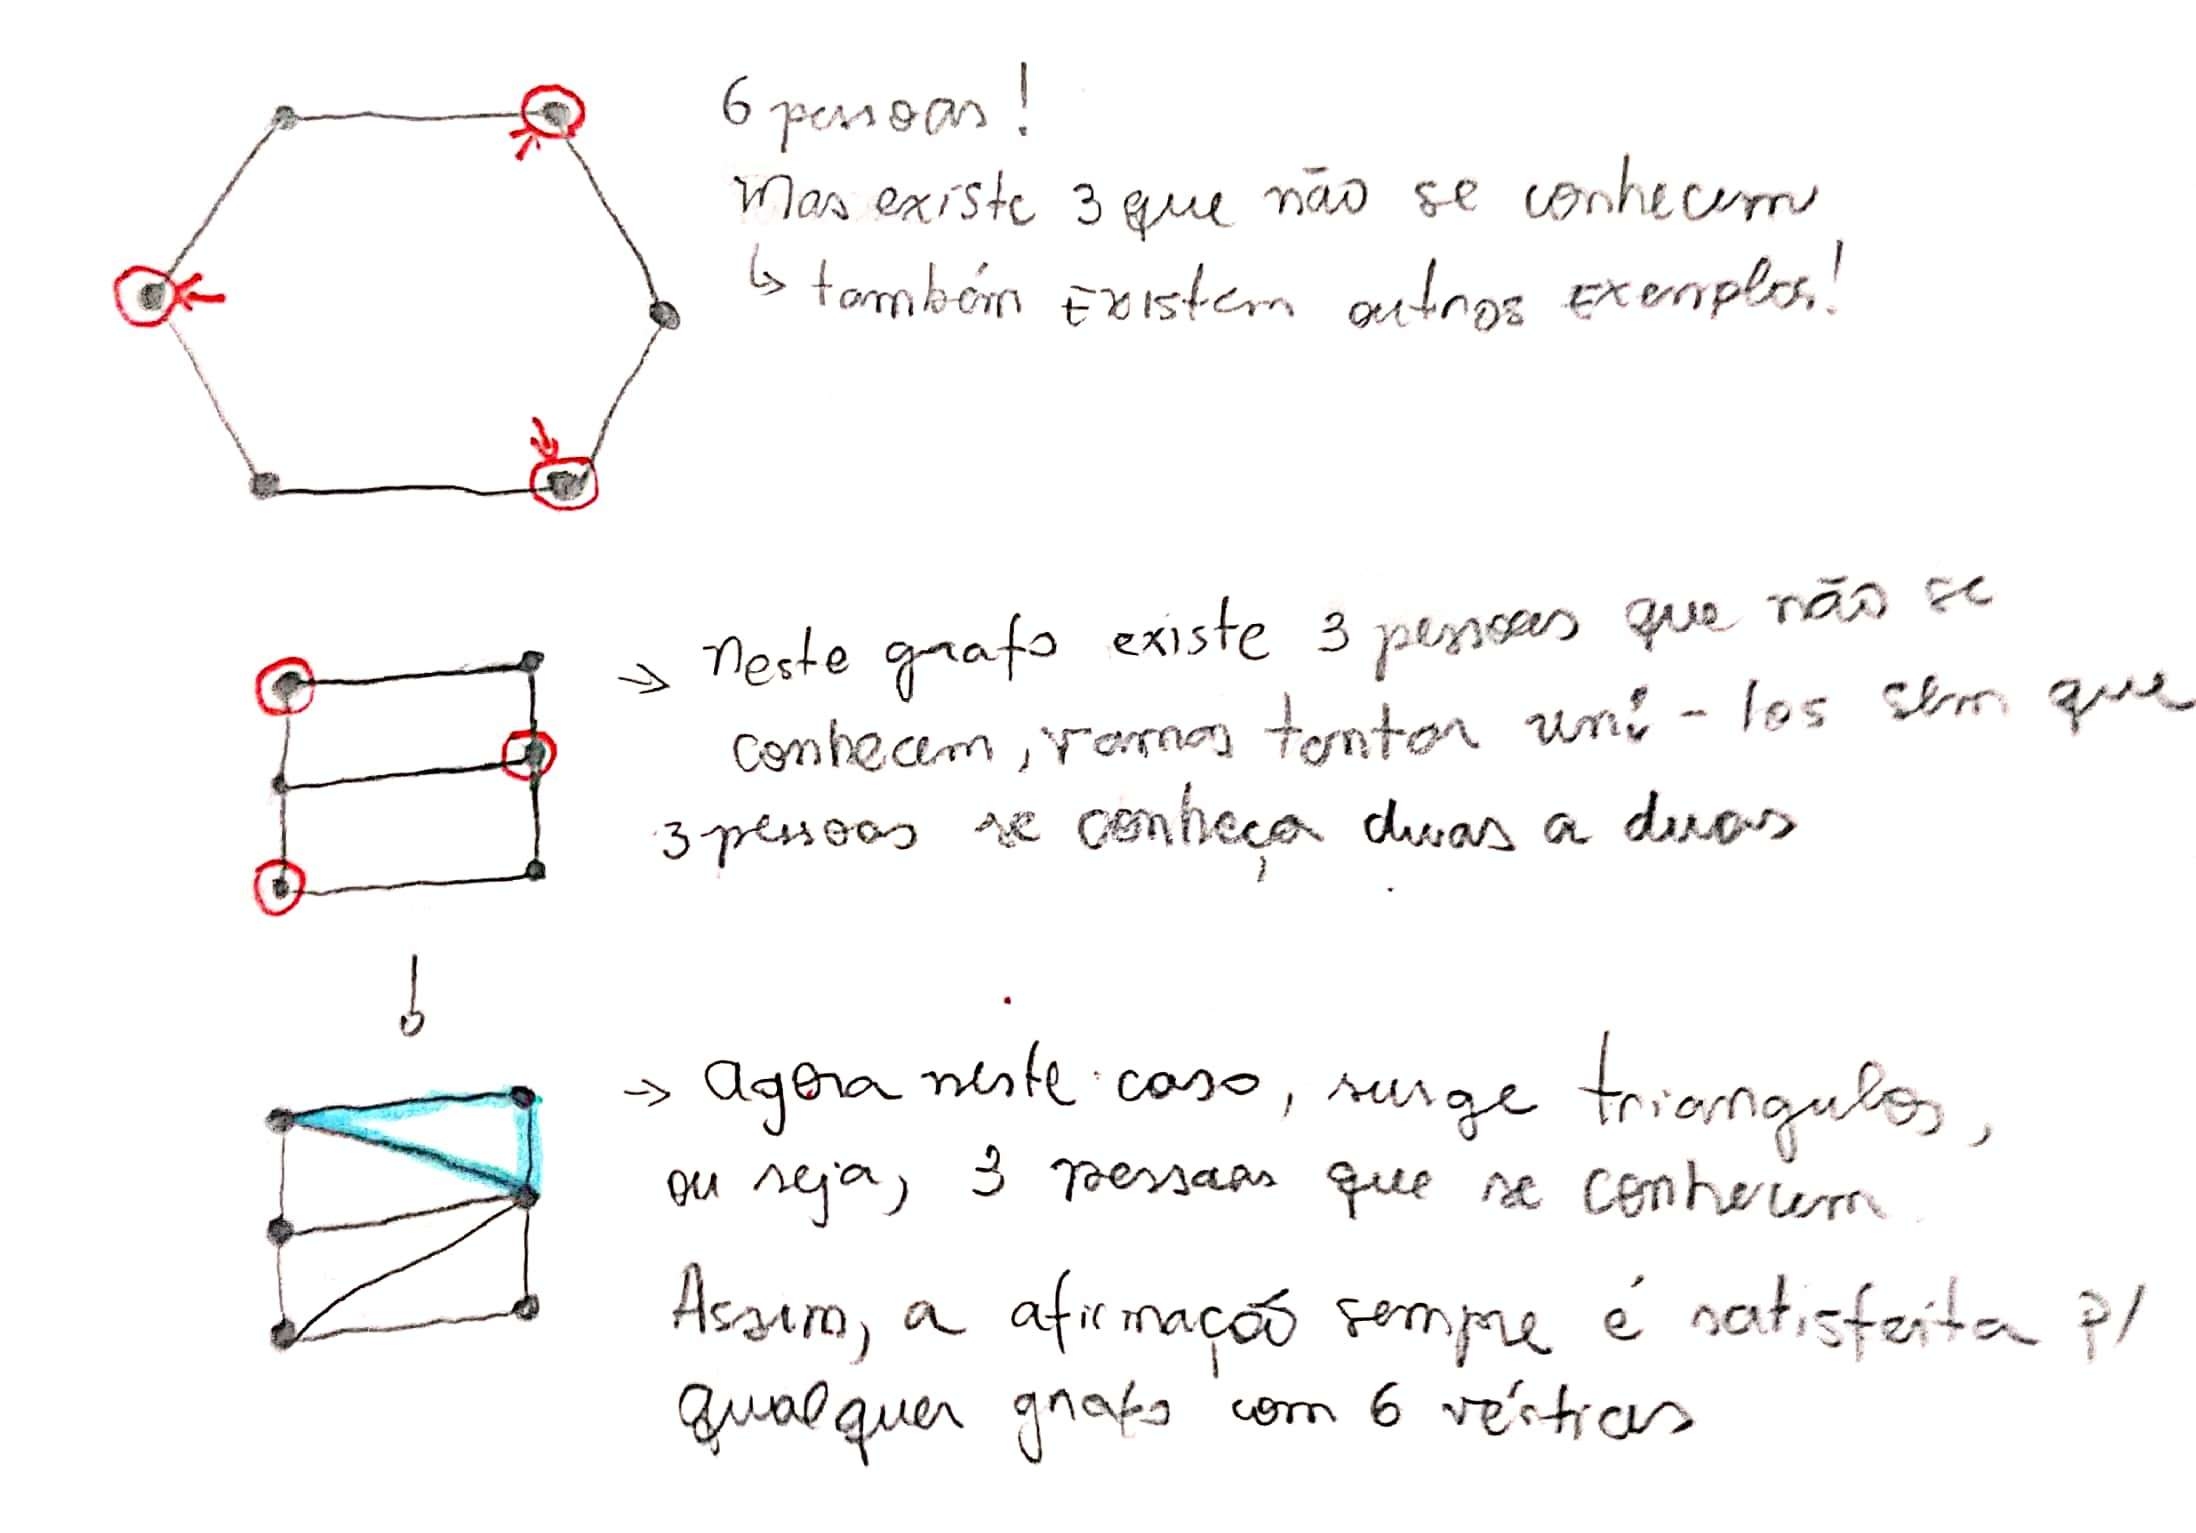 6 pessoas!
Mas existe 3 que não se conhecem
↳ também existem outros exemplos!
→ Neste grafo existe 3 pessoas que não se
conhecem, vamos tentar uni-los sem que
3 pessoas se conheça duas a duas
→ Agora neste caso, surge triangulos,
ou seja, 3 pessoas que se conhecem
Assim, a afirmação sempre é satisfeita p/
qualquer grafo com 6 vértices